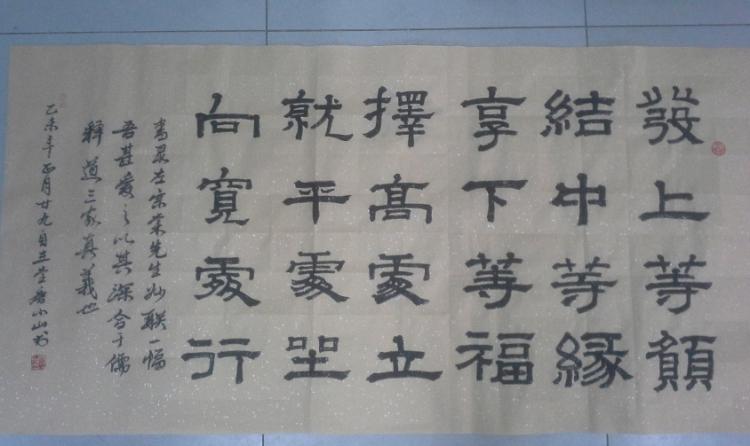 發上等願
結中等緣
享下等福
擇高處立
就平處坐
向寬處行
書録左宗棠先生妙联一幅
吾甚爱之以其深合于儒
释道三家真義也
乙未年正月廿九日